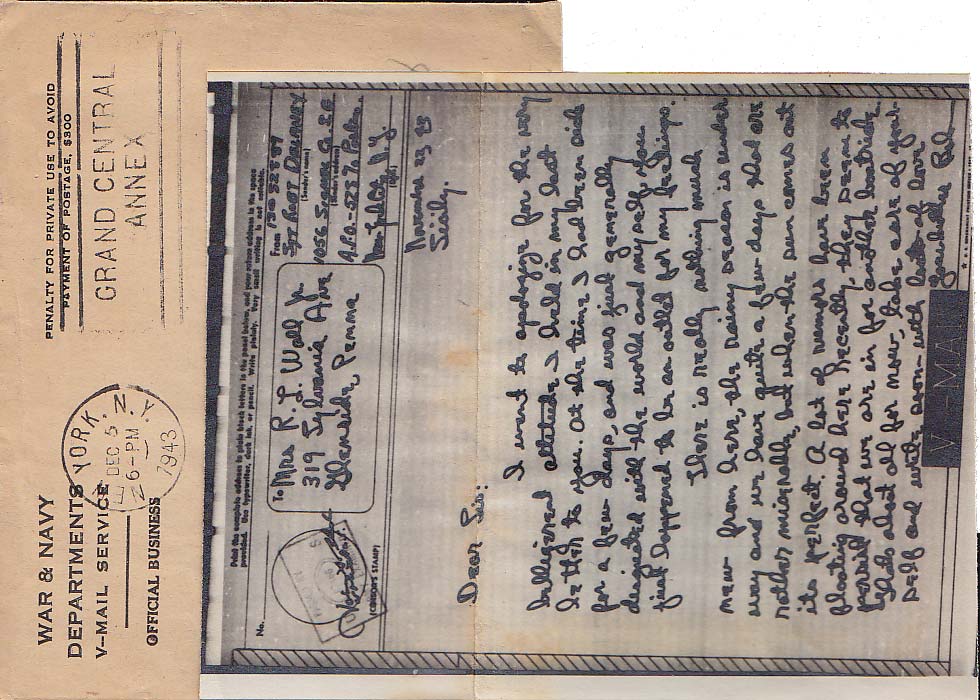 WAR & NAVY
DEPARTMENTS
V-MAIL SERVICE
OFFICIAL BUSINESS
YORK, N.Y.
DEC 5
6-PM
1943
PENALTY FOR PRIVATE USE TO AVOID
PAYMENT OF POSTAGE, $300
GRAND CENTRAL
ANNEX
Print the complete address in plain block letters in the panel below, and your return address in the space
provided. Use typewriter, dark ink, or pencil. Write plainly. Very small writing is not suitable.
No.
(CENSOR'S STAMP)
To Mrs R. L. Wall Jr.
319 Sylvania Ave
Glenside, Penna
From
(Sender's name)
(Sender's address)
(Date)
November 23, 43
Sicily.
Dear Sis:
I want to apologize for the very
belligerent attitude I held in my last
letter to you. At the time I had been sick
for a few days, and was just generally
disgusted with the world and myself. You
just happened to be an outlet for my feelings.
There is really nothing much
new from here, the rainy season is under
way and we have quite a few days that are
rather miserable, but when the sun comes out
its perfect. A lot of rumors have been
floating around here recently, they seem to
persist that we are in for another boatride.
Thats about all for now, take care of your-
self and write soon - with lots of love
V-MAIL